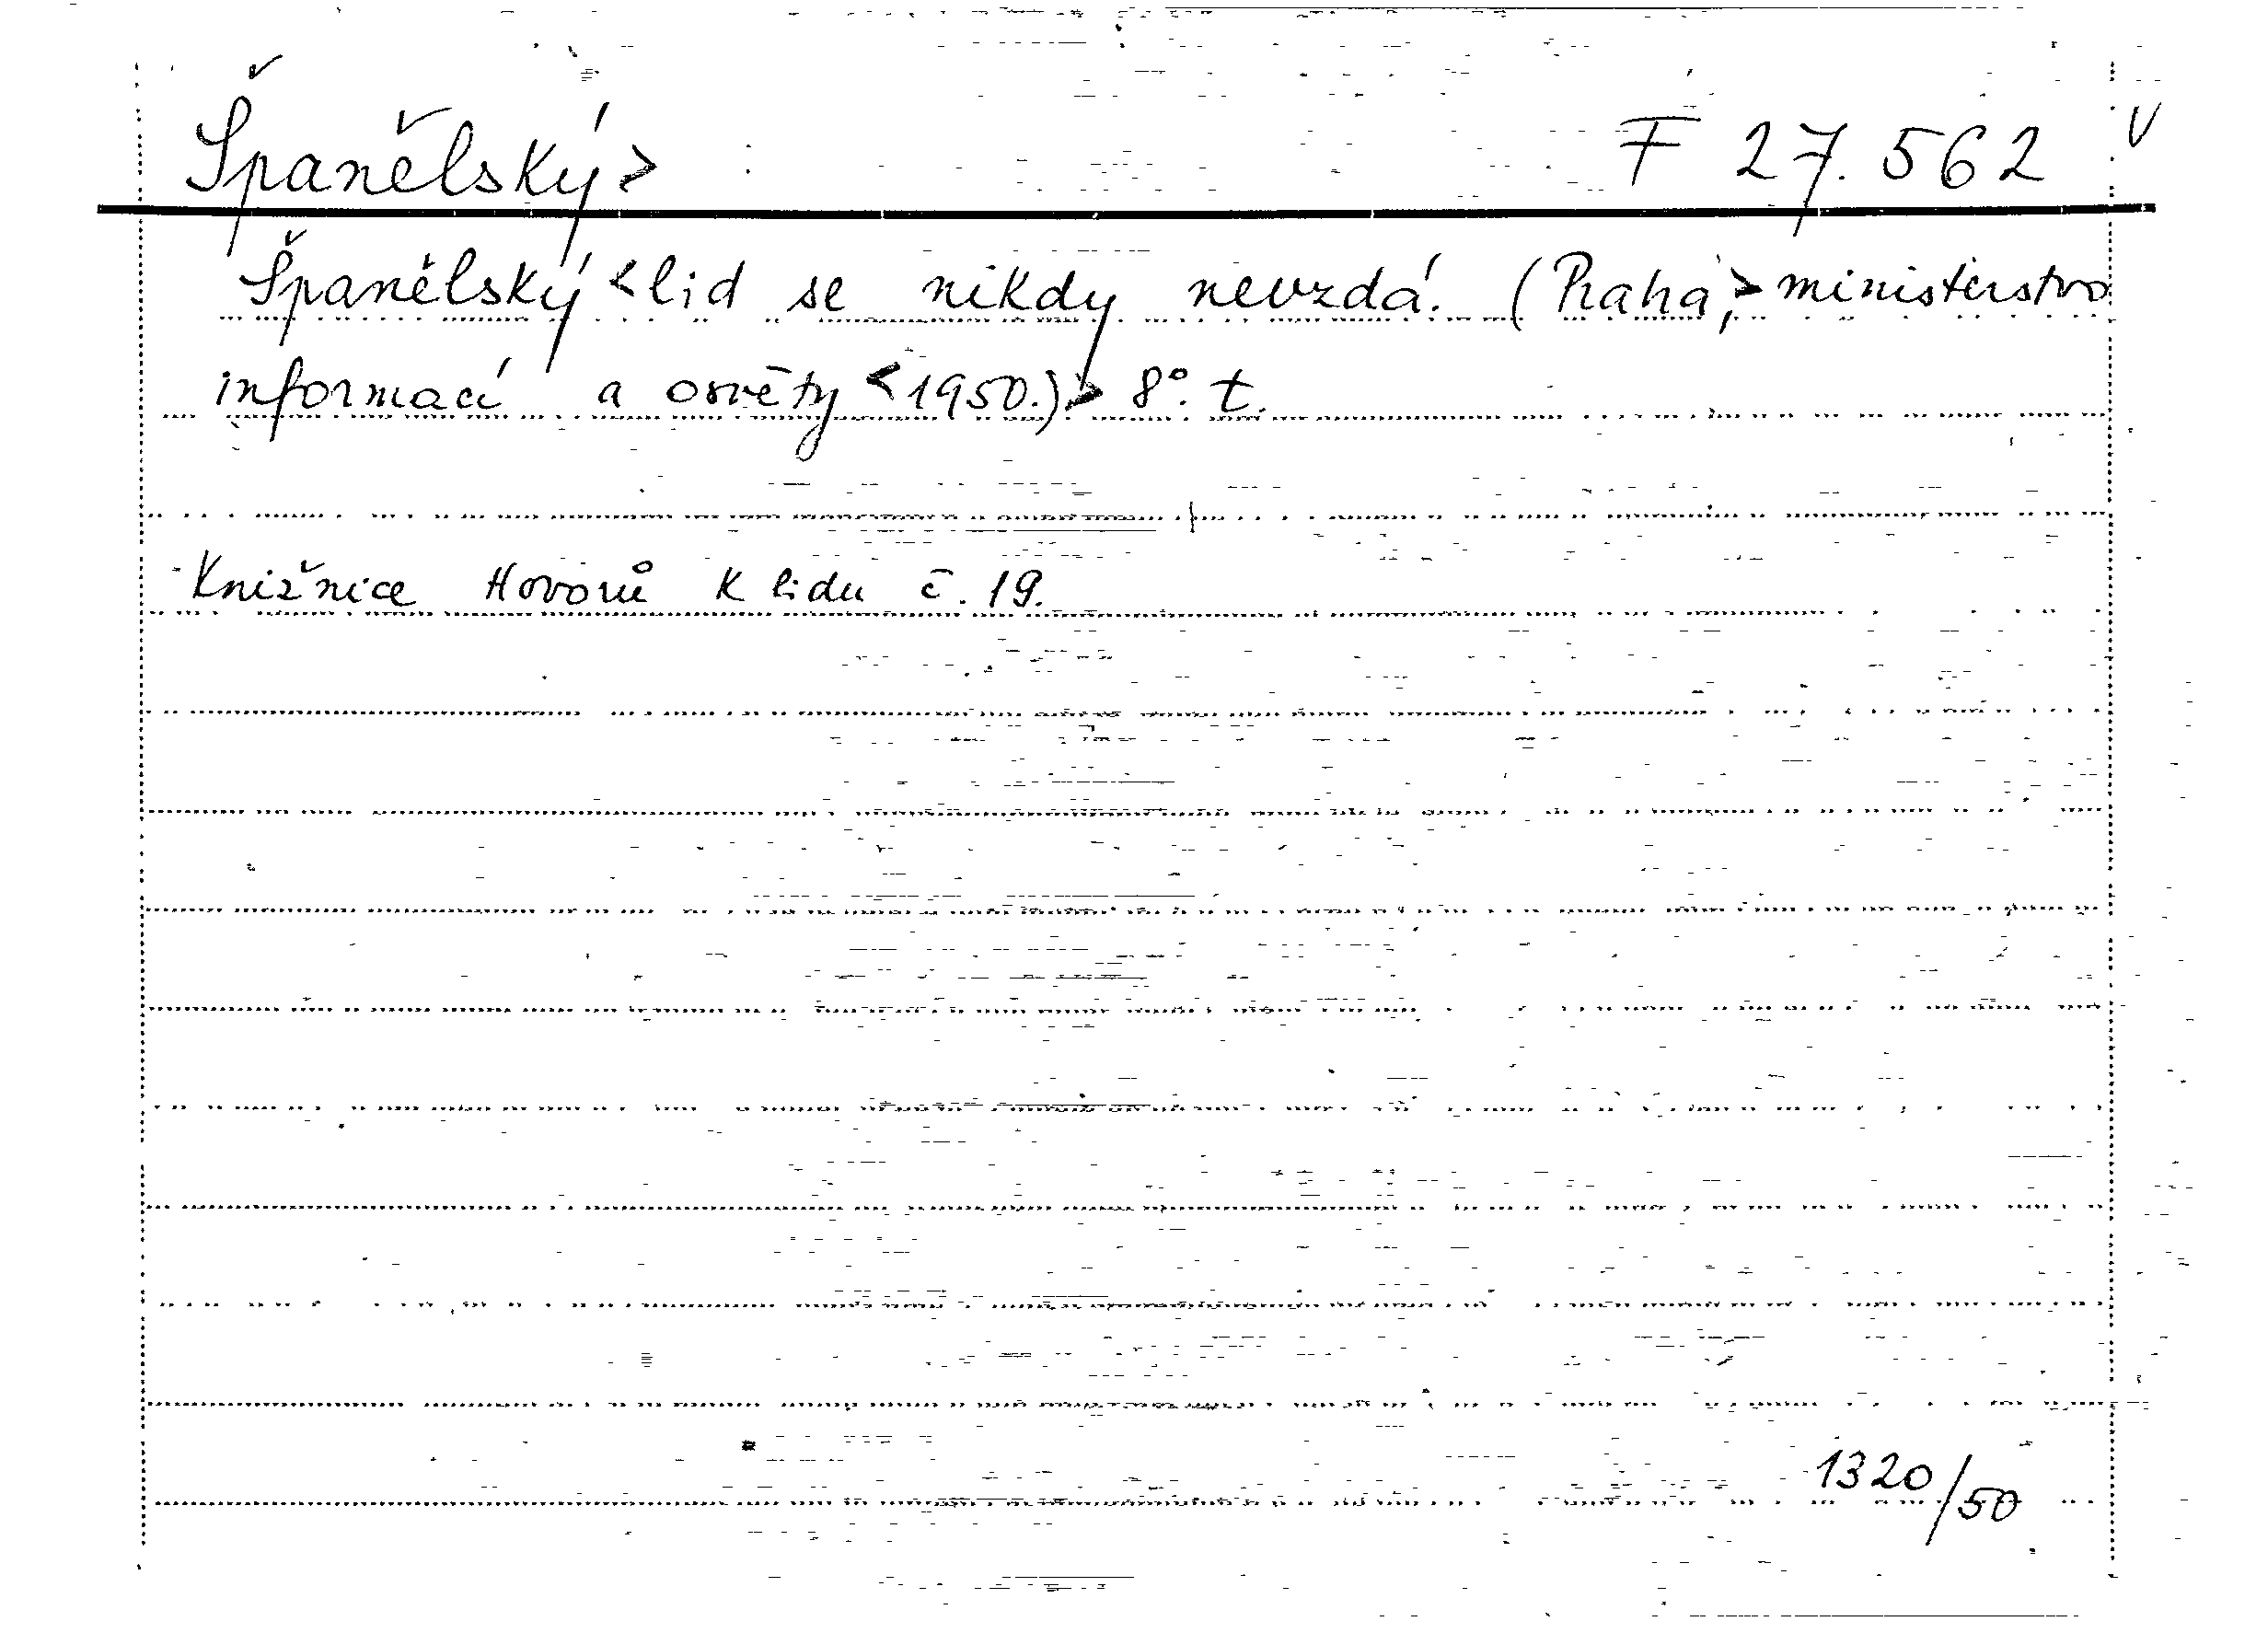 Španělský> F 27.562 V
Španělský <lid se nikdy nevzdá. (Praha,> ministerstvo
informací a osvěty <1950.)> 8°. t.
Knižnice Hovorů k lidu č. 19.
1320/50